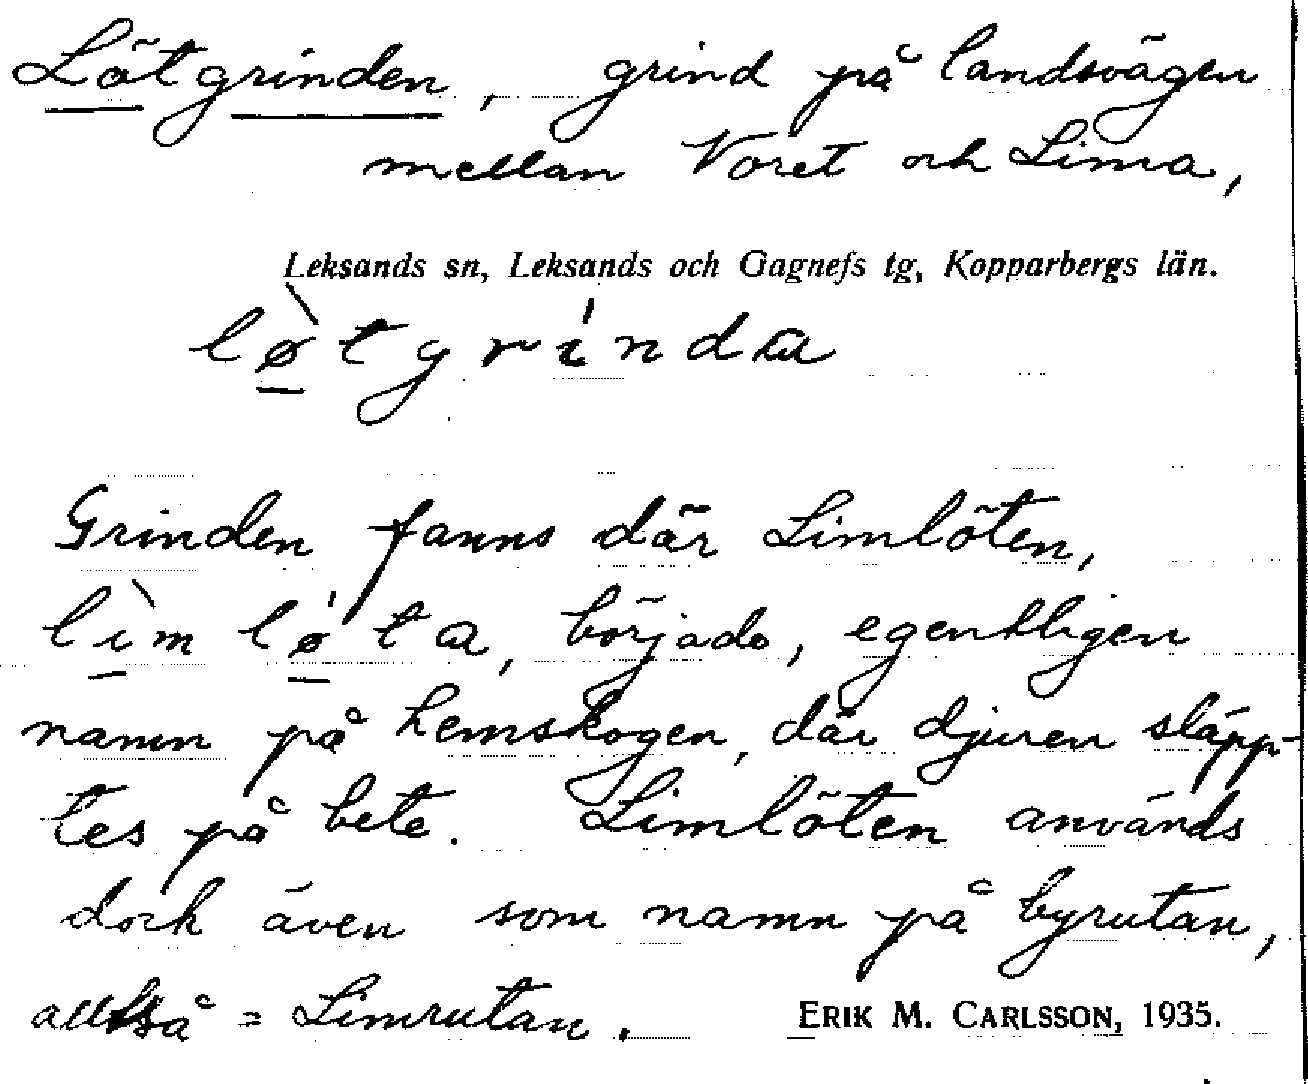 Lötgrinden, grind på landsvägen
mellan Noret och Lima,
Leksands sn, Leksands och Gagnefs tg, Kopparbergs län.
lø̀tgrínda
Grinden fanns där Limlöten,
lìmlǿta, började, egentligen
namn på hemskogen, där djuren släpp-
tes på bete. Limlöten används
dock även som namn på byrutan,
alltså = Limrutan.
ERIK M. CARLSSON, 1935.